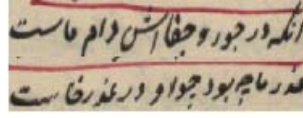 آنکه در جور و جفا اش دام ماست
عذر ما چه بود چو او در عذر خاست